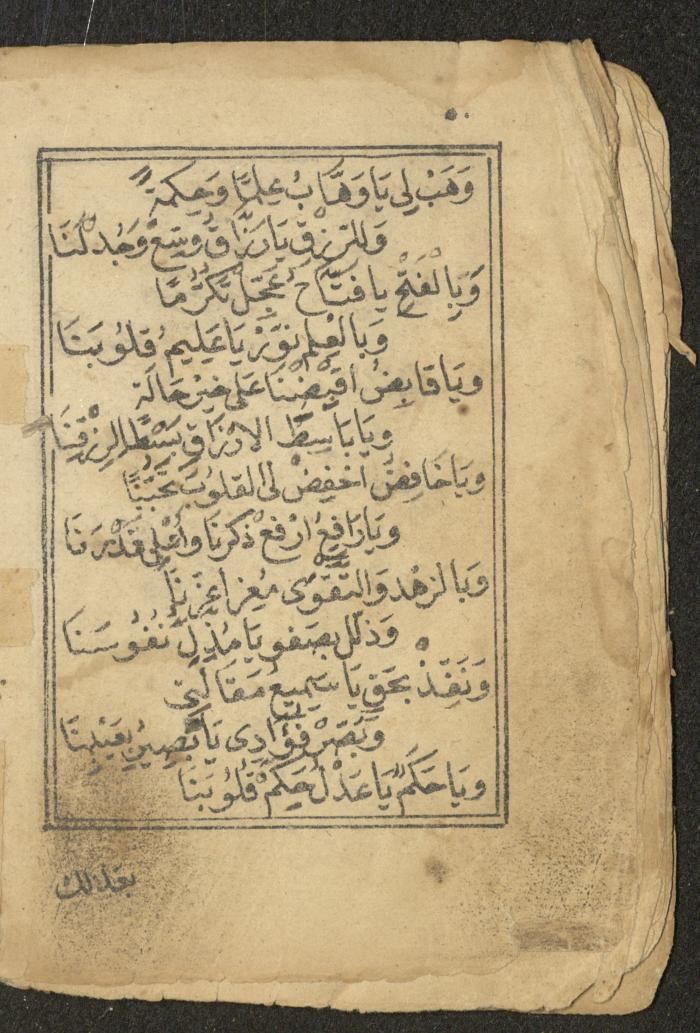 وَهَبْ لِي يَا وَهَّابُ عِلْمًا وَحِكْمَةً
وَلِلرِّزْقِ يَا رَزَّاقُ وَسِّعْ وَجُدْ لَنَا
وَبِالْفَتْحِ يَا فَتَّاحُ عَجِّلْ تَكَرُّمًا
وَبِالْعِلْمِ نَوِّرْ يَا عَلِيمُ قُلُوبَنَا
وَيَا قَابِضُ اقْبِضْنَا عَلَى خَيْرِ حَالَةٍ
وَيَا بَاسِطَ الارْزَاقِ بَسْطًا لِرِزْقِنَا
وَيَا خَافِضُ اخْفِضْ لِى الْقُلُوبَ تَحَبُّبًا
وَيَا رَافِعُ ارْفَعْ ذِكْرَنَا وَأَعْلِى قَدْرَنَا
وَبِالزُهْدِ وَالتَّقْوَى مُعِزُ اعِزَّنَا
وَذَلِّلْ بِصَفْوٍ يَا مُذِلُّ نُفُوسَنَا
وَنَفِّذْ بِحَقٍ يَا سَمِيعُ مَقَالَتِى
وَبَصِّرْ فُؤَادِى يَا بَصِيرُ بِعَيْبِنَا
وَيَا حَكَمُ يَا عَدْلُ حَكِّمْ قُلُوبَنَا
بعدلك